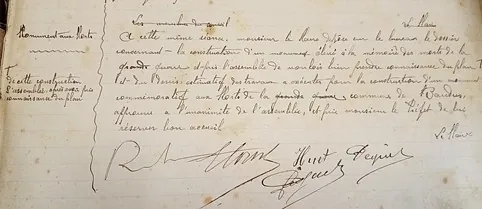 Les membres du conseil
Le Maire
Monument aux Morts
A cette même séance, monsieur le Maire dépose sur le bureau le dossier
concernant la construction d'un monument élevé à la mémoire des morts de la
grande guerre et prie l'assemblée de vouloir bien prendre connaissance du plan
et du Devis estimatif des travaux à exécuter pour la construction d'un monument
commémoratif aux Morts de la grande guerre commune de Baudres,
de cette construction
L'assemblée, après avoir pris
connaissance du plan
approuve à l'unanimité de l'assemblée, et prie monsieur le Préfet de lui
réserver bon accueil
Le Maire
Huet